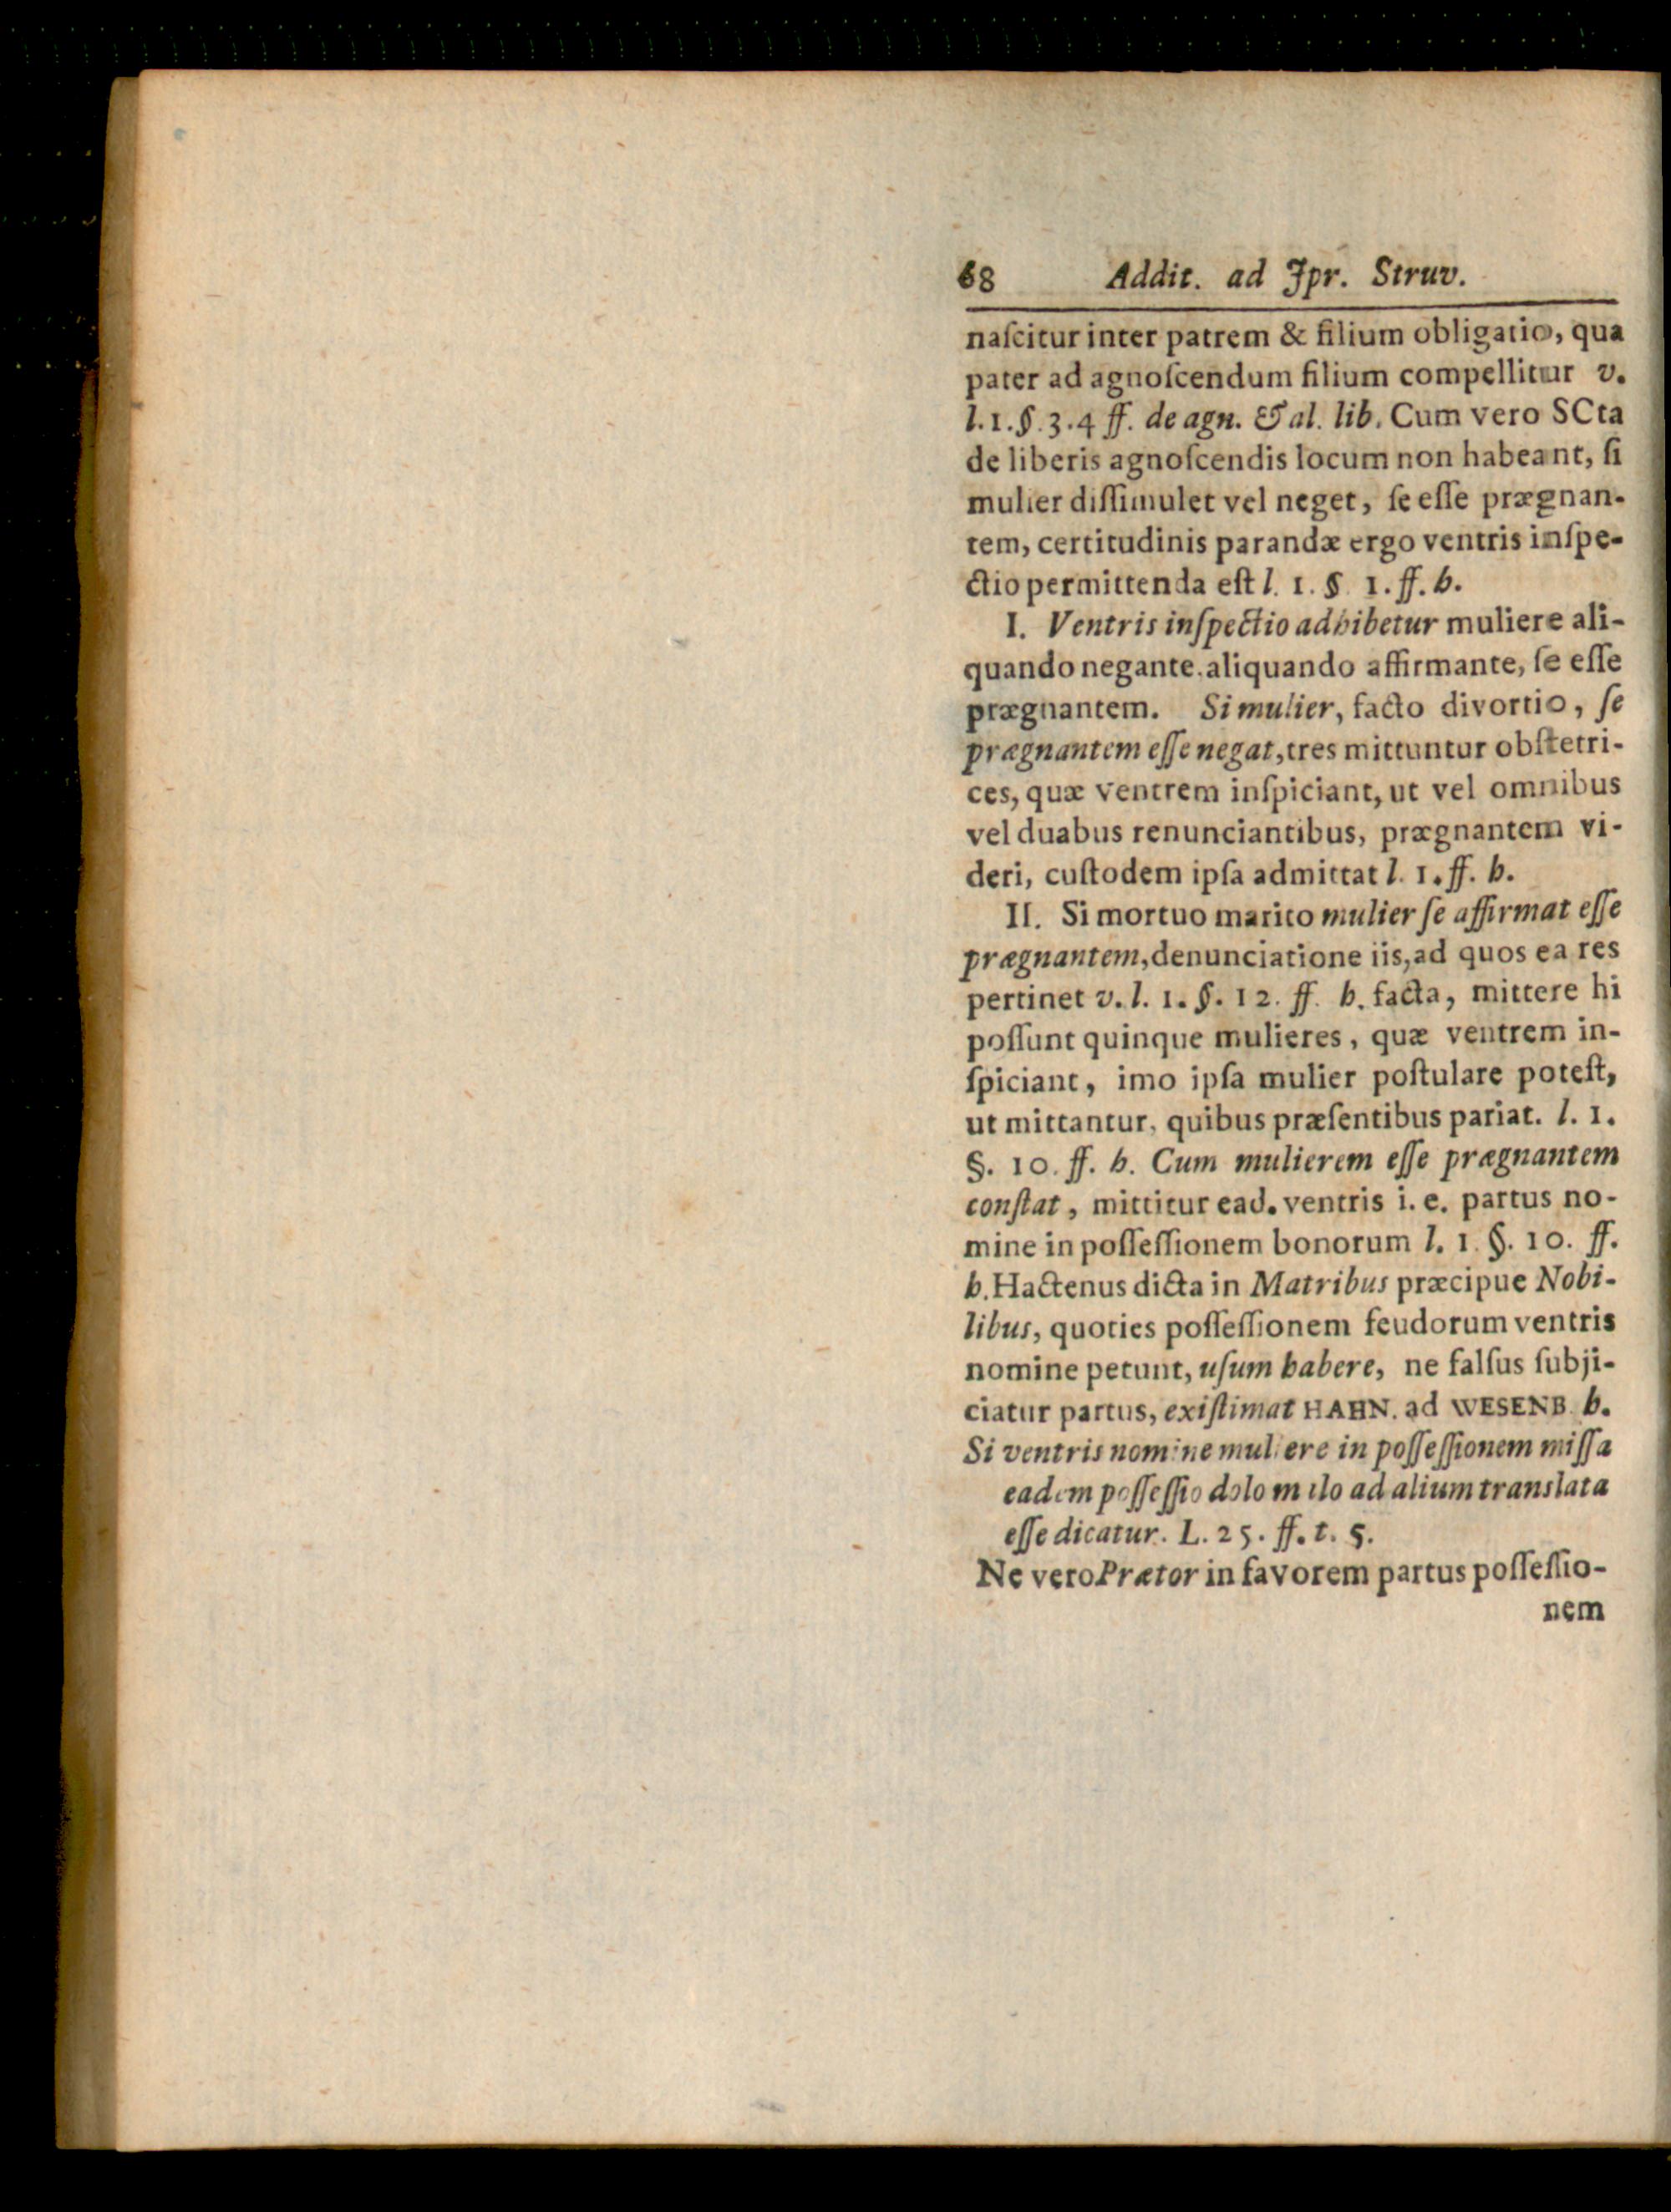 68 Addit. ad Jpr. Struv.
naſcitur inter patrem & filium obligatio, qua
pater ad agnoſcendum filium compellitur v.
l. 1. §. 3. 4 ff. de agn. & al. lib. Cum vero SCta
de liberis agnoſcendis locum non habeant, ſi
mulier diſſimulet vel neget, ſe eſſe prægnan-
tem, certitudinis parandæ ergo ventris inſpe-
ctio permittenda eſt l. 1. § 1. ff. h.
I. Ventris inſpectio adhibetur muliere ali-
quando negante. aliquando affirmante, ſe eſſe
prægnantem. Si mulier, facto divortio, ſe
prægnantem eſſe negat, tres mittuntur obſtetri-
ces, quæ ventrem inſpiciant, ut vel omnibus
vel duabus renunciantibus, prægnantem vi-
deri, cuſtodem ipſa admittat l. 1. ff. h.
II. Si mortuo marito mulier ſe affirmat eſſe
prægnantem, denunciatione iis, ad quos ea res
pertinet v. l. 1. §. 12. ff. h. facta, mittere hi
poſſunt quinque mulieres, quæ ventrem in-
ſpiciant, imo ipſa mulier poſtulare poteſt,
ut mittantur, quibus præſentibus pariat. l. 1.
§. 10. ff. h. Cum mulierem eſſe prægnantem
conſtat, mittitur ead. ventris i. e. partus no-
mine in poſſeſſionem bonorum l. 1. §. 10. ff.
h. Hactenus dicta in Matribus præcipue Nobi-
libus, quoties poſſeſſionem feudorum ventris
nomine petunt, uſum habere, ne falſus ſubji-
ciatur partus, exiſtimat HAHN. ad WESENB. h.
Si ventris nomine muliere in poſſeſſionem miſſa
eadem poſſeſſio dolo malo ad alium translata
eſſe dicatur. L. 25. ff. t. 5.
Ne vero Prætor in favorem partus poſſeſſio-
nem